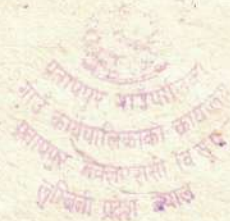 प्रतापपुर गाउँपालिका
गाउँ कार्यपालिकाको कार्यालय
प्रतापपुर
लुम्बिनी प्रदेश नेपाल